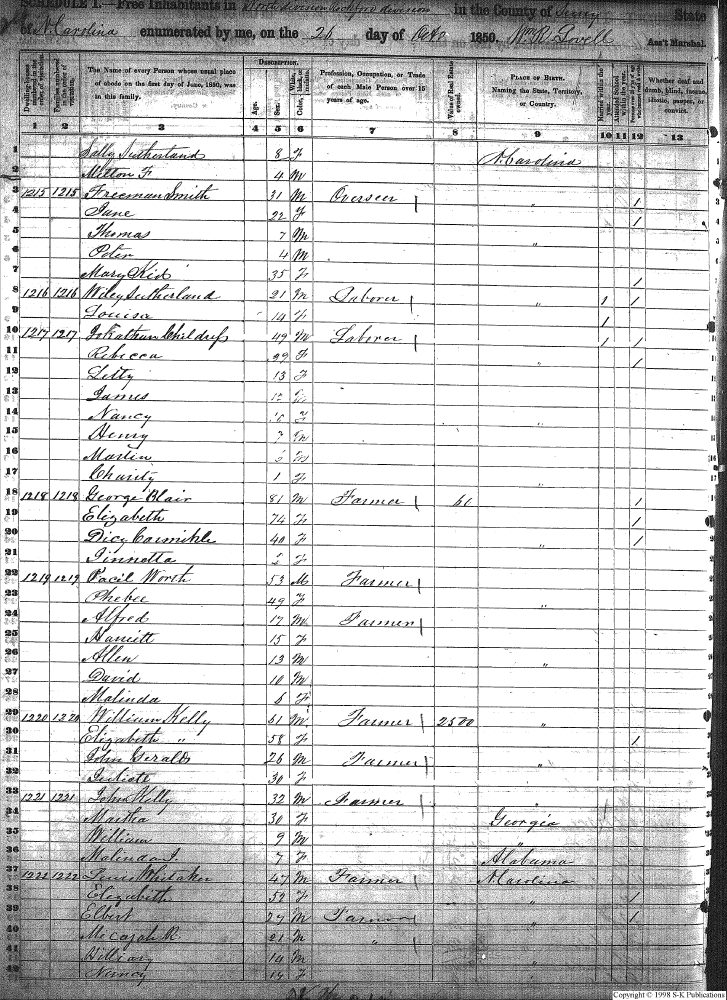 SCHEDULE I.—Free Inhabitants in in the County of Surry State
of N. Carolina enumerated by me, on the 26 day of Octo 1850. Wm R. Lovell Ass't Marshal.
Dwelling-houses numbered in the order of visitation.
Families numbered in the order of visitation.
The Name of every Person whose usual place of abode on the first day of June, 1850, was in this family.
DESCRIPTION.
Age.
Sex.
Profession, Occupation, or Trade of each Male Person over 15 years of age.
Value of Real Estate owned.
PLACE OF BIRTH. Naming the State, Territory, or Country.
Married within the year.
Whether deaf and dumb, blind, insane, idiotic, pauper, or convict.
1 2 3 4 5 6 7 8 9 10 11 12 13
1 Sally Sutherland 8 F N. Carolina
2 Milton F 4 M
3 1215 1215 Freeman Smith 31 M Overseer " /
4 Jane 22 F /
5 Thomas 7 M "
6 Peter 4 M
7 Mary Kid 35 F /
8 1216 1216 Wiley Sutherland 21 M Laborer " / /
9 Louisa 14 F /
10 1217 1217 Childress 49 M Laborer / /
11 Rebecca 39 F " /
12 Letty 13 F
13 James
14 Nancy F "
15 Henry 7 M
16 Martin M
17 Charity 1 F "
18 1218 1218 George Blair 81 M Farmer 60 /
19 Elizabeth 74 F /
20 Dicy Carmikle 40 F " /
21 Jinnetta F
22 1219 1219 Worth 53 M Farmer
23 Phebee 49 F "
24 Alfred 17 M Farmer
25 Harriett 15 F
26 Allen 13 M "
27 David 10 M
28 Malinda 6 F
29 1220 1220 William Kelly 61 M Farmer 2500 "
30 Elizabeth " 58 F /
31 John Geralds 26 M Farmer "
32 30 F
33 1221 1221 John Kelly 32 M Farmer "
34 Martha 30 F Georgia
35 William 9 M "
36 Malinda J. 7 F Alabama
37 1222 1222 Whitaker 47 M Farmer N. Carolina
38 Elizabeth 52 F " /
39 Elbert 24 M Farmer " /
40 Micajah R. 21 M "
41 William M "
42 Nancy 14 F
Copyright © 1998 S-K Publications